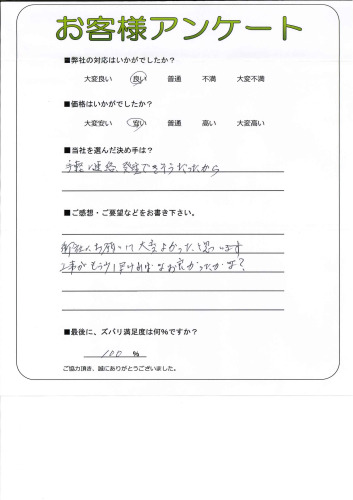 お客様アンケート
■弊社の対応はいかがでしたか？
大変良い 良い 普通 不満 大変不満
■価格はいかがでしたか？
大変安い 安い 普通 高い 大変高い
■当社を選んだ決め手は？
手軽に連絡、発注できそうだったから
■ご感想・ご要望などをお書き下さい。
御社にお願いして大変よかったと思います
工事がもう少し早ければなお良かったかな？
■最後に、ズバリ満足度は何％ですか？
100 ％
ご協力頂き、誠にありがとうございました。